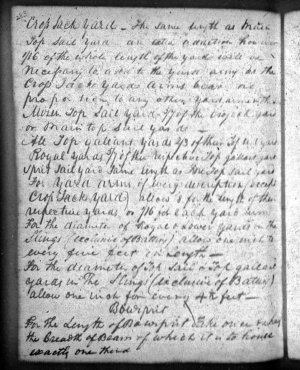 Crop Jack Yard - The same length as Mizen
Top Sail Yard an extra addition however
1/16 of the whole length of the yard will be
necessary to add to the yard arms as the
Crop Jack Yard Arms bear no
proportion to any other yard arms -
Mizen Top Sail Yard of the
or Main top Sail yards
All Top gallant yards 2/3 of their Top Sail yards
Royal Yards of their respective Top gallant yards
Sprit Sail yard same length as Fore Top Sail yard
For Yard Arms of every description (except
Crop Jack Yards) allow the length of their
respective yards or 1/16 for each yard arm
For the diameter of Royal & Lower yards in the
Slings (exclusive of Battens) allow one inch to
every five feet in Length -
For the diameter of Top Sail & Top gallant
yards in The Slings (exclusive of Battens)
allow one inch for every 4 feet -
Bowsprit
For the Length of Bowsprit Take once
the breadth of Beam of which it is to house
exactly one third